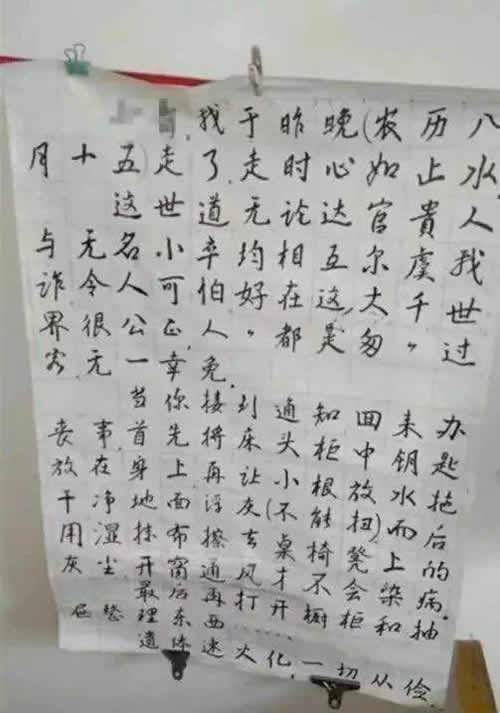 找于昨晚(农历八
月十五)走了,走时心如止水,
这世道无论达官贵人
与无名小卒均相互尔虞我
诈,令人可伯,好在这大千世
界很公正,人人"都是匆匆"过
客,无一幸免.
当你接到通知回来办
丧事首先将床头柜中钥匙
放在身上再让小根放水拖
干净地面浮灰(不能扭)而后
用湿抹布擦去桌椅凳上的
灰尘,开窗通风才不会染病.
最后再打开橱柜和抽
屉整理东西……
遗体速火化,一切从俭.